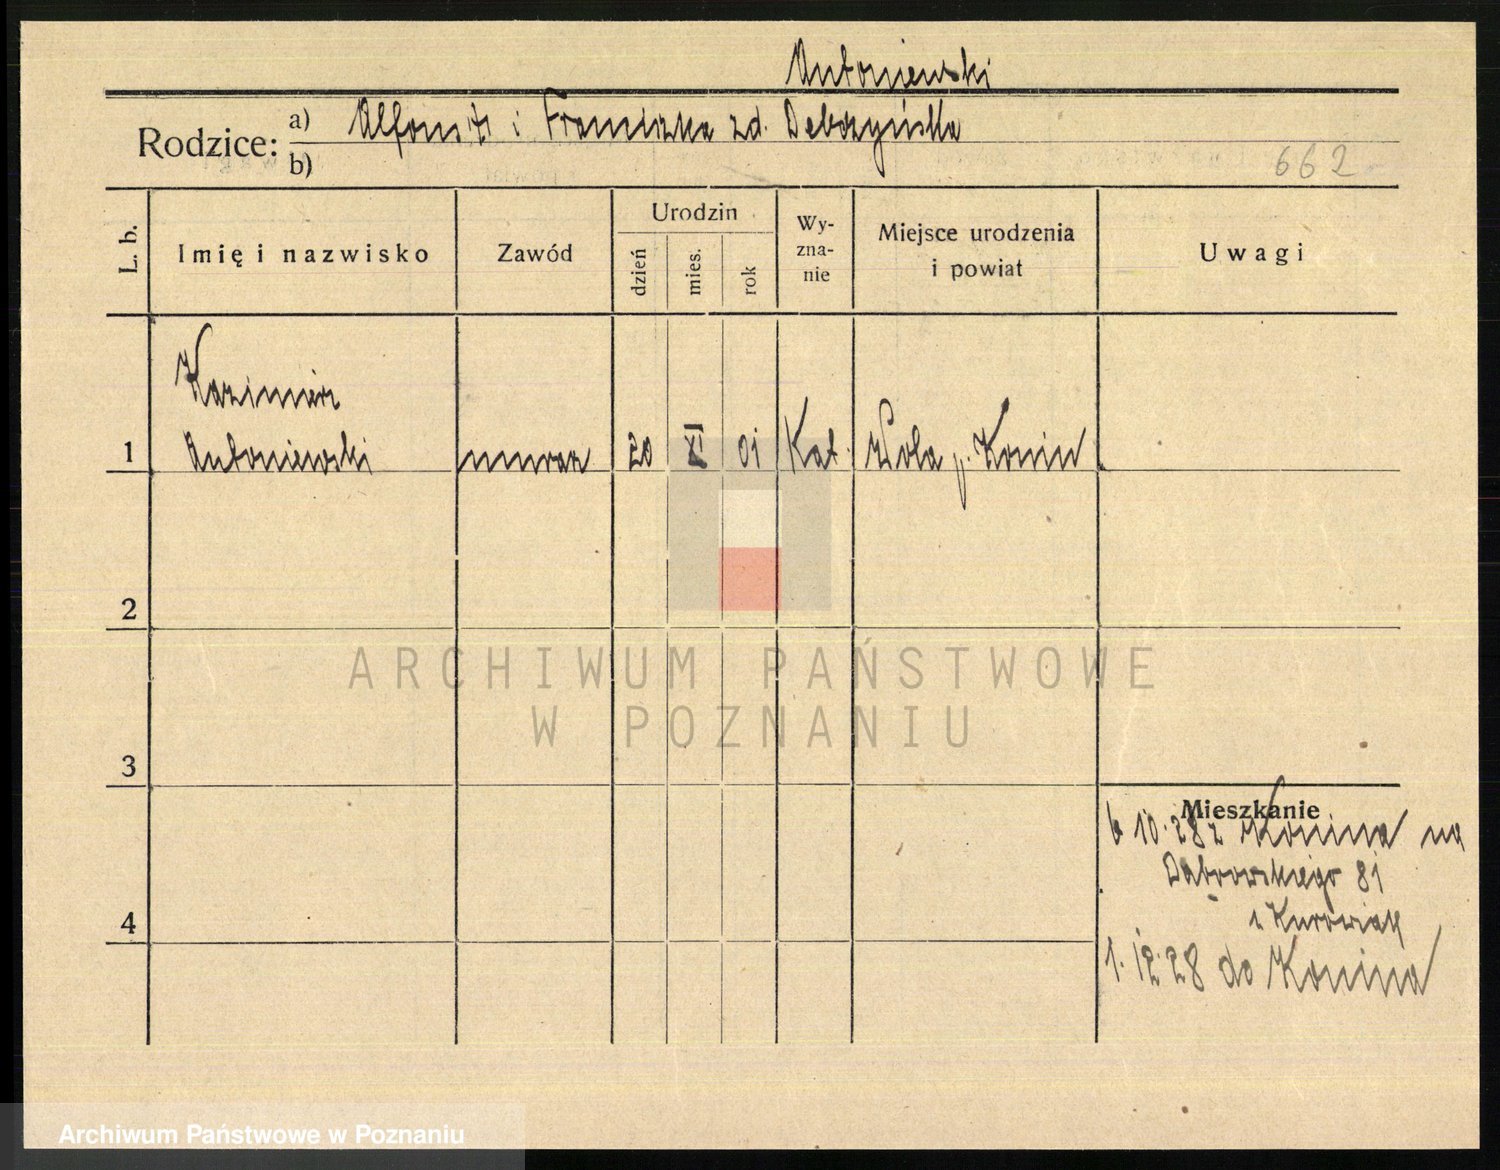 Antoniewski
Rodzice: a) Alfons i Franciszka zd. Debczyńska
b)
662
L. b. Imię i nazwisko Zawód Urodzin dzień mies. rok Wy-zna-nie Miejsce urodzenia i powiat Uwagi
Kazimierz
1 Antoniewski murarz 20 XI 01 Kat. Wola p. Konin
2
ARCHIWUM PAŃSTWOWE
W POZNANIU
3
Mieszkanie
6 10.28 z Konina na
Dąbrowskiego 81
Kurowiak
4
1.12.28 do Konina
Archiwum Państwowe w Poznaniu